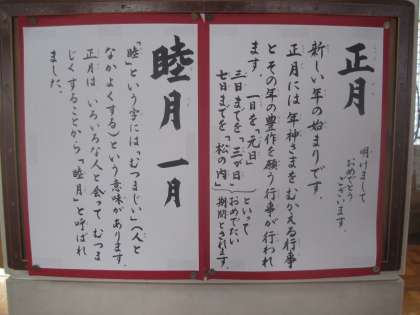 正月
明けまして
おめでとう
ございます。
新しい年の始まりです。
正月には年神さまをむかえる行事
とその年の豊作を願う行事が行われ
ます。一日を「元日」
三日までを「三が日」
七日までを「松の内」
といって
おめでたい
期間とされます。
睦月 一月
「睦」という字には「むつまじい」(人と
なかよくする)という意味があります。
正月は いろいろな人と会って むつま
じくすることから「睦月」と呼ばれ
ました。